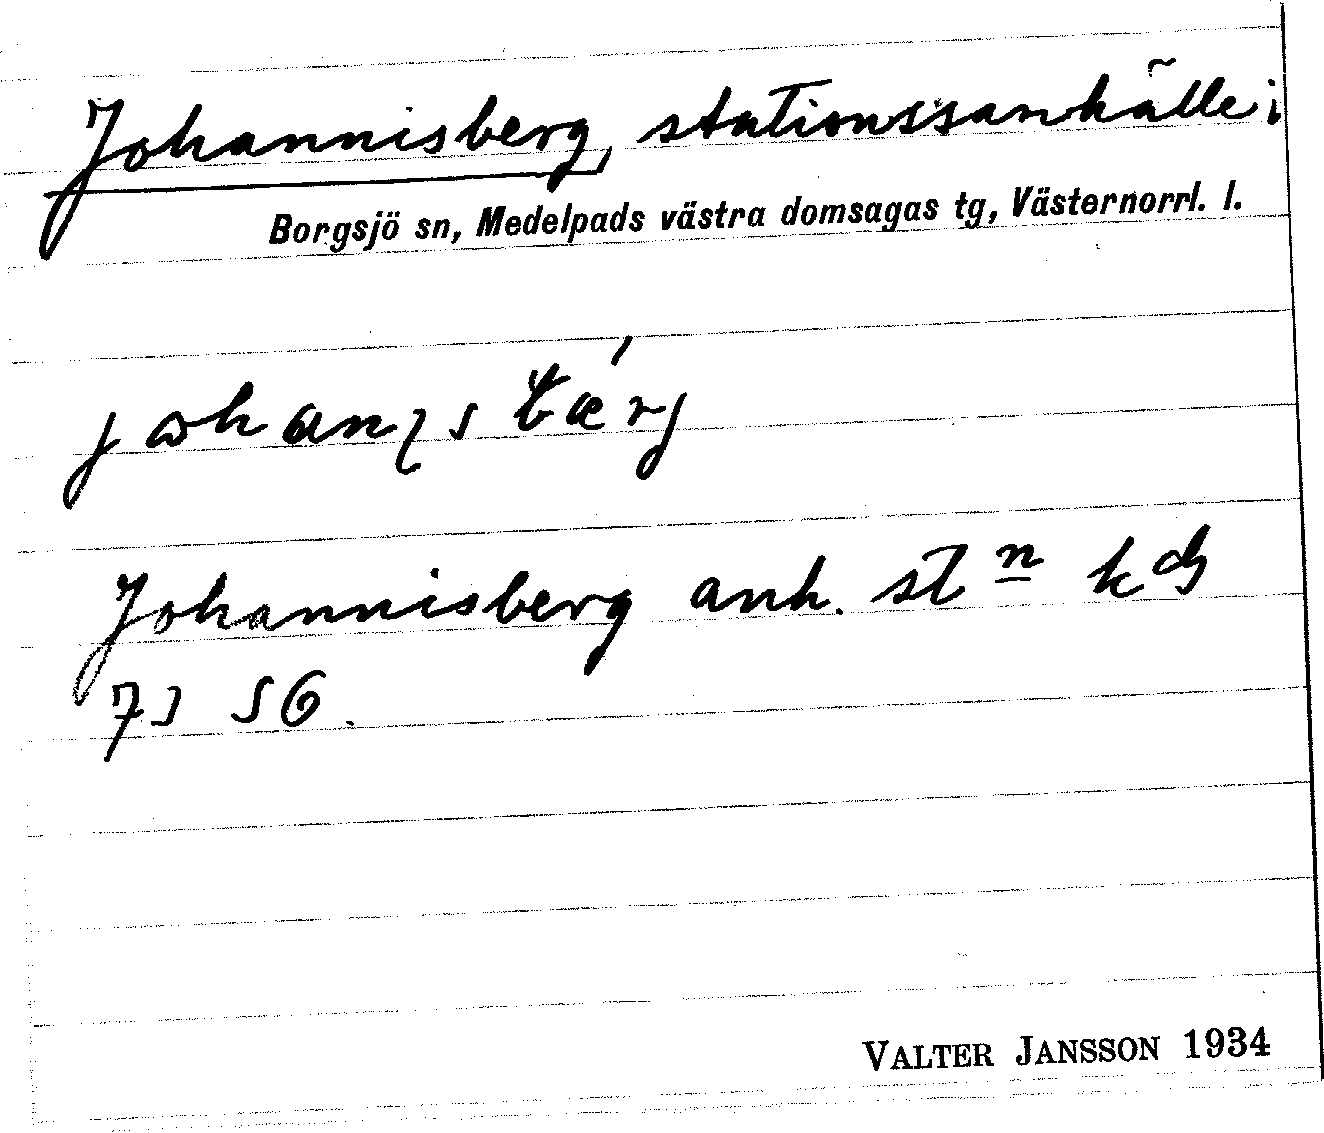 Johannisberg, stationssamhälle i
Borgsjö sn, Medelpads västra domsagas tg, Västernorrl. l.
Johannisberg anh. stn
73 S6.
VALTER JANSSON 1934